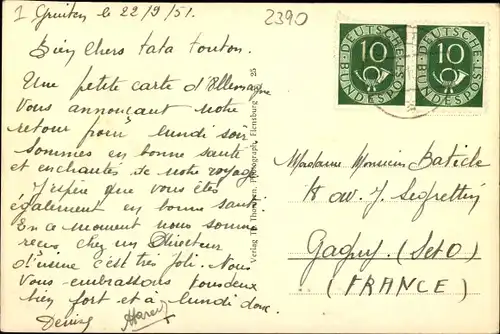 1 Gruiten le 22/9/51.
2390
Bien chers tata tonton.
Une petite carte d'Allemagne
Vous annonçant notre
retour pour lundi soir
Sommes en bonne santé
et enchantés de notre voyage
J'espère que vous êtes
également en bonne santé
En ce moment nous sommes
reçus chez un Directeur
d'usine c'est très joli. Nous
Vous embrassons tous deux
bien fort et à lundi donc.
Denise
Verlag Th. Thomsen, Photograph, Flensburg 25
DEUTSCHE BUNDESPOST 10
DEUTSCHE BUNDESPOST 10
Madame Monsieur Baticle
18 av. J.
Gagny. (Set O)
(FRANCE)